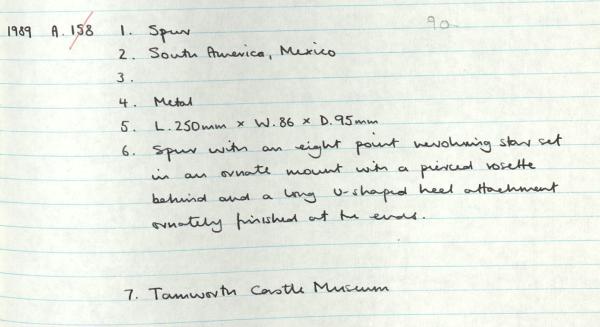 90
1989 A.158 1. Spur
2. South America, Mexico
3.
4. Metal
5. L.250mm x W.86 x D.95mm
6. Spur with an eight point revolving star set
in an ornate mount with a pierced rosette
behind and a long U-shaped heel attachment
ornately finished at the ends.
7. Tamworth Castle Museum